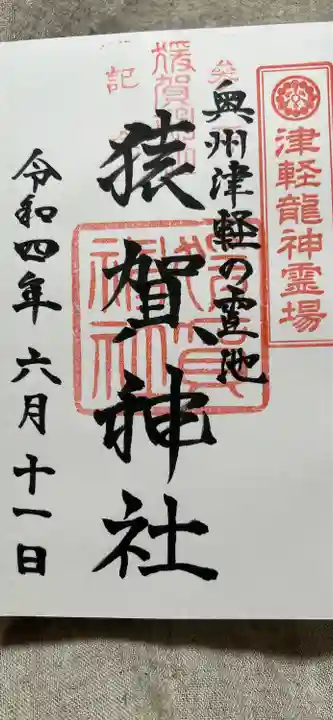 津軽龍神霊場
奥州津軽の霊地
猿賀神社
猿賀神社
令和四年六月十一日